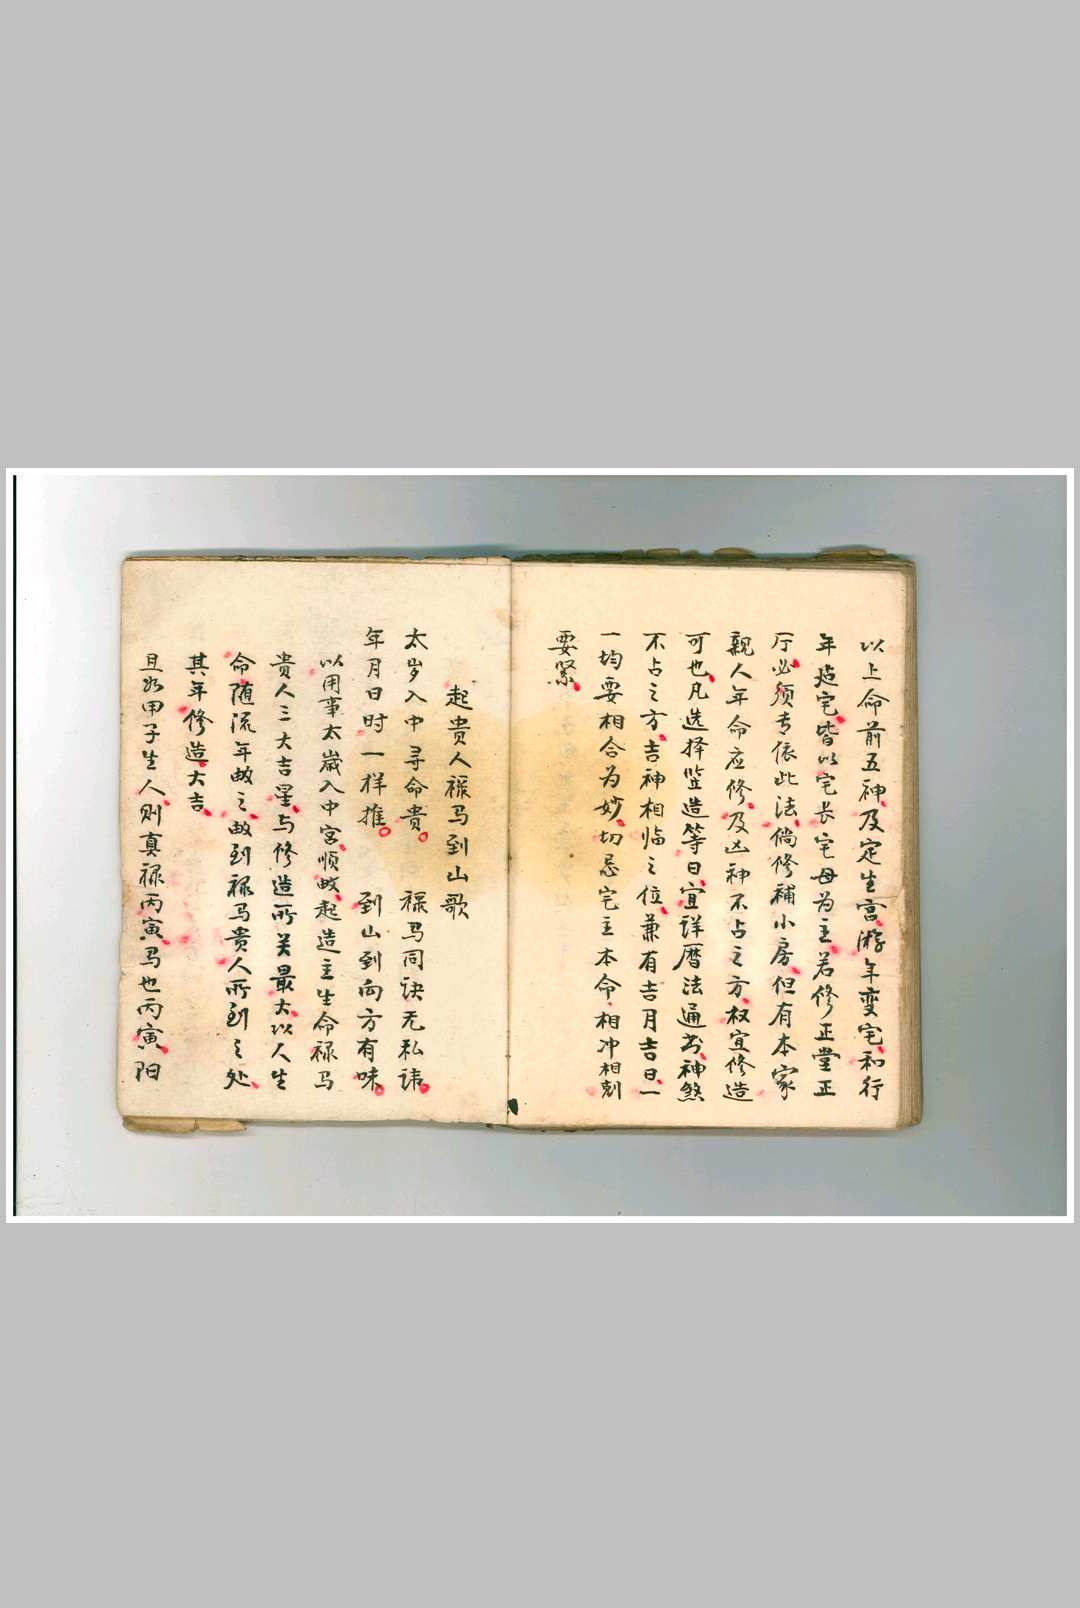 以上命前五神及定生宫游年变宅和行
年造宅皆以宅长宅母为主若修正堂正
厅必须专依此法倘修補小房但有本家
親人年命应修及凶神不占之方权宜修造
可也凡选择监造等日宜详曆法通书神煞
不占之方吉神相临之位兼有吉月吉日一
一均要相合为妙切忌宅主本命相冲相剋
要紧
起贵人禄马到山歌
太岁入中寻命贵 禄马同诀无私讳
年月日时一样推 到山到向方有味
以用事太歲入中宫顺起造主生命禄马
贵人三大吉星与修造所关最大以人生
命随流年之到禄马贵人所到之处
其年修造大吉
且如甲子生人则真禄丙寅马也丙寅阳